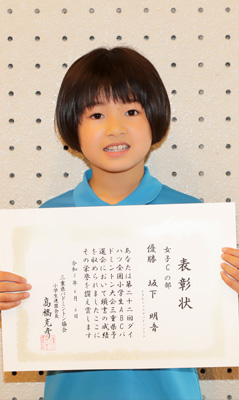 表彰状
女子Cの部
優勝 坂下 明音
あなたは第二十二回ダイ
ハツ全国小学生ABCバ
ドミントン大会三重県予
選会において頭書の成績
を収められましたここに
その栄誉を讃え賞します
三重県バドミントン協会
高橋克彦